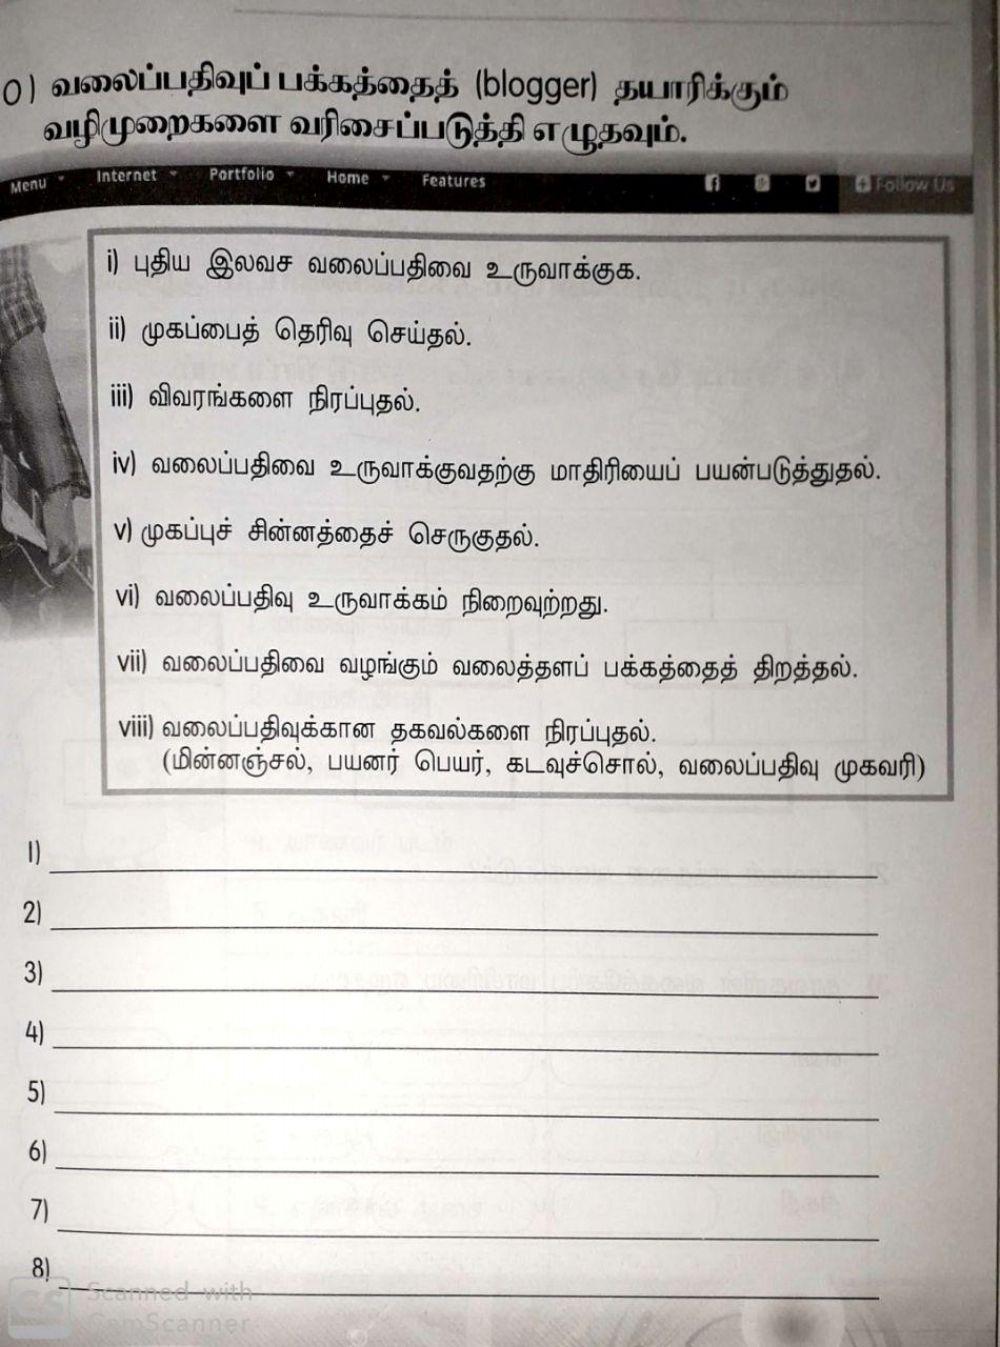 0) வலைப்பதிவுப் பக்கத்தைத் (blogger) தயாரிக்கும்
வழிமுறைகளை வரிசைப்படுத்தி எழுதவும்.
Menu Internet Portfolio Home Features Follow Us
i) புதிய இலவச வலைப்பதிவை உருவாக்குக.
ii) முகப்பைத் தெரிவு செய்தல்.
iii) விவரங்களை நிரப்புதல்.
iv) வலைப்பதிவை உருவாக்குவதற்கு மாதிரியைப் பயன்படுத்துதல்.
v) முகப்புச் சின்னத்தைச் செருகுதல்.
vi) வலைப்பதிவு உருவாக்கம் நிறைவுற்றது.
vii) வலைப்பதிவை வழங்கும் வலைத்தளப் பக்கத்தைத் திறத்தல்.
viii) வலைப்பதிவுக்கான தகவல்களை நிரப்புதல்.
(மின்னஞ்சல், பயனர் பெயர், கடவுச்சொல், வலைப்பதிவு முகவரி)
1)
2)
3)
4)
5)
6)
7)
8)
CS Scanned with
CamScanner